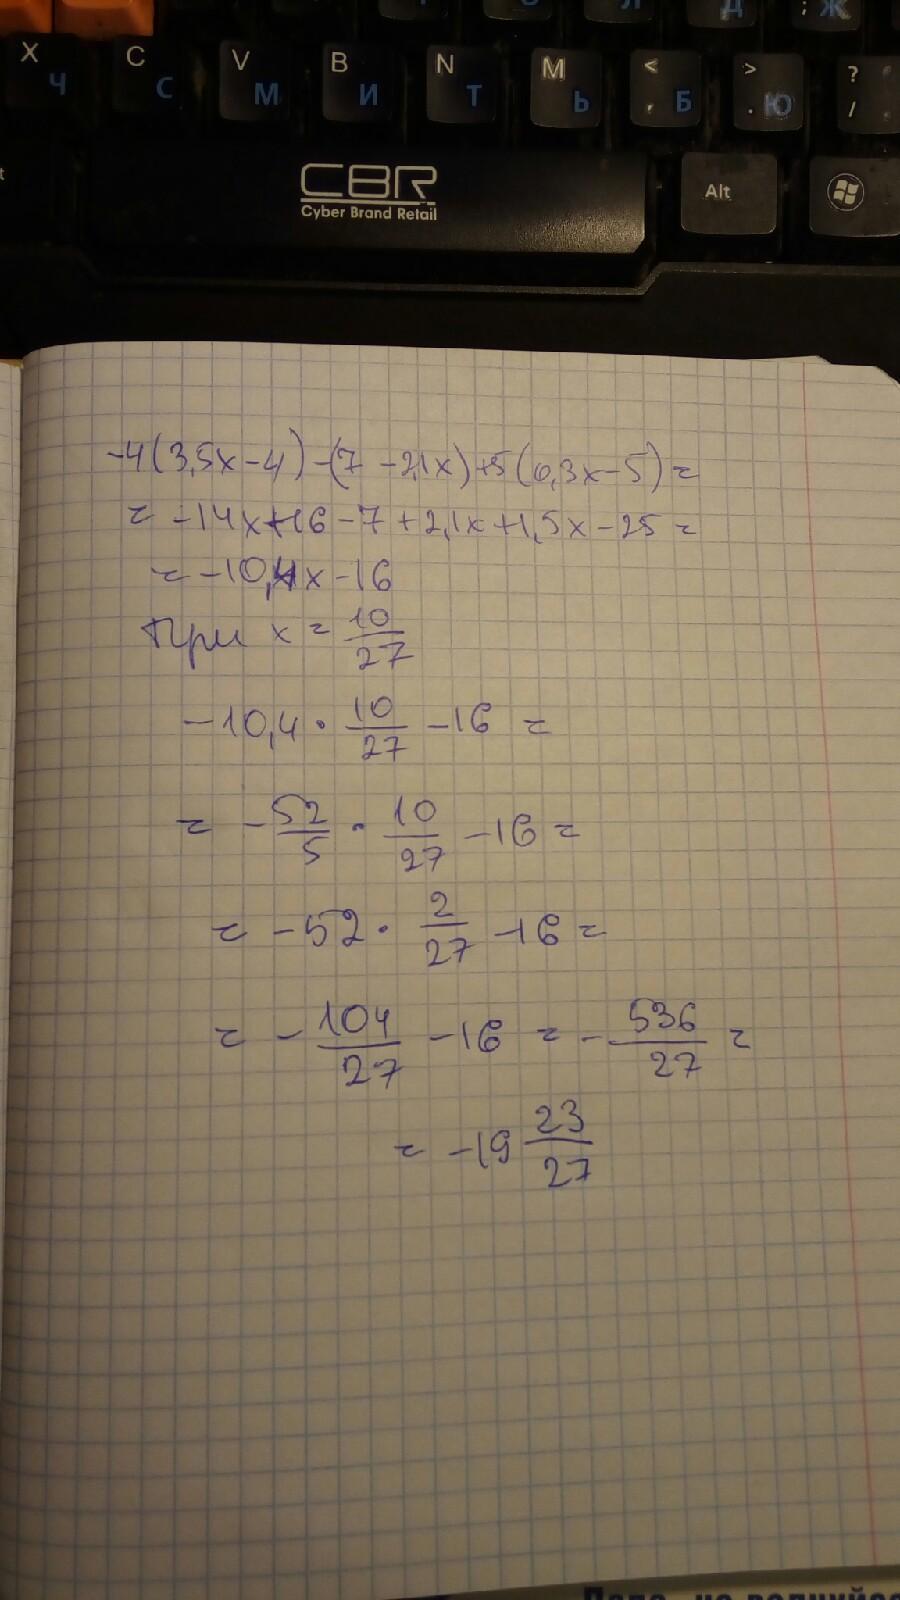 Д ; Ж
X Ч C С V М B И N Т M Ь < , Б > . Ю ? /
CBR Alt
Cyber Brand Retail
-4(3,5x-4)-(7-2,1x)+5(0,3x-5)=
= -14x+16-7+2,1x+1,5x-25=
= -10,4x-16
При x = 10/27
-10,4 · 10/27 - 16 =
= - 52/5 · 10/27 - 16 =
= -52 · 2/27 - 16 =
= - 104/27 - 16 = - 536/27 =
= -19 23/27